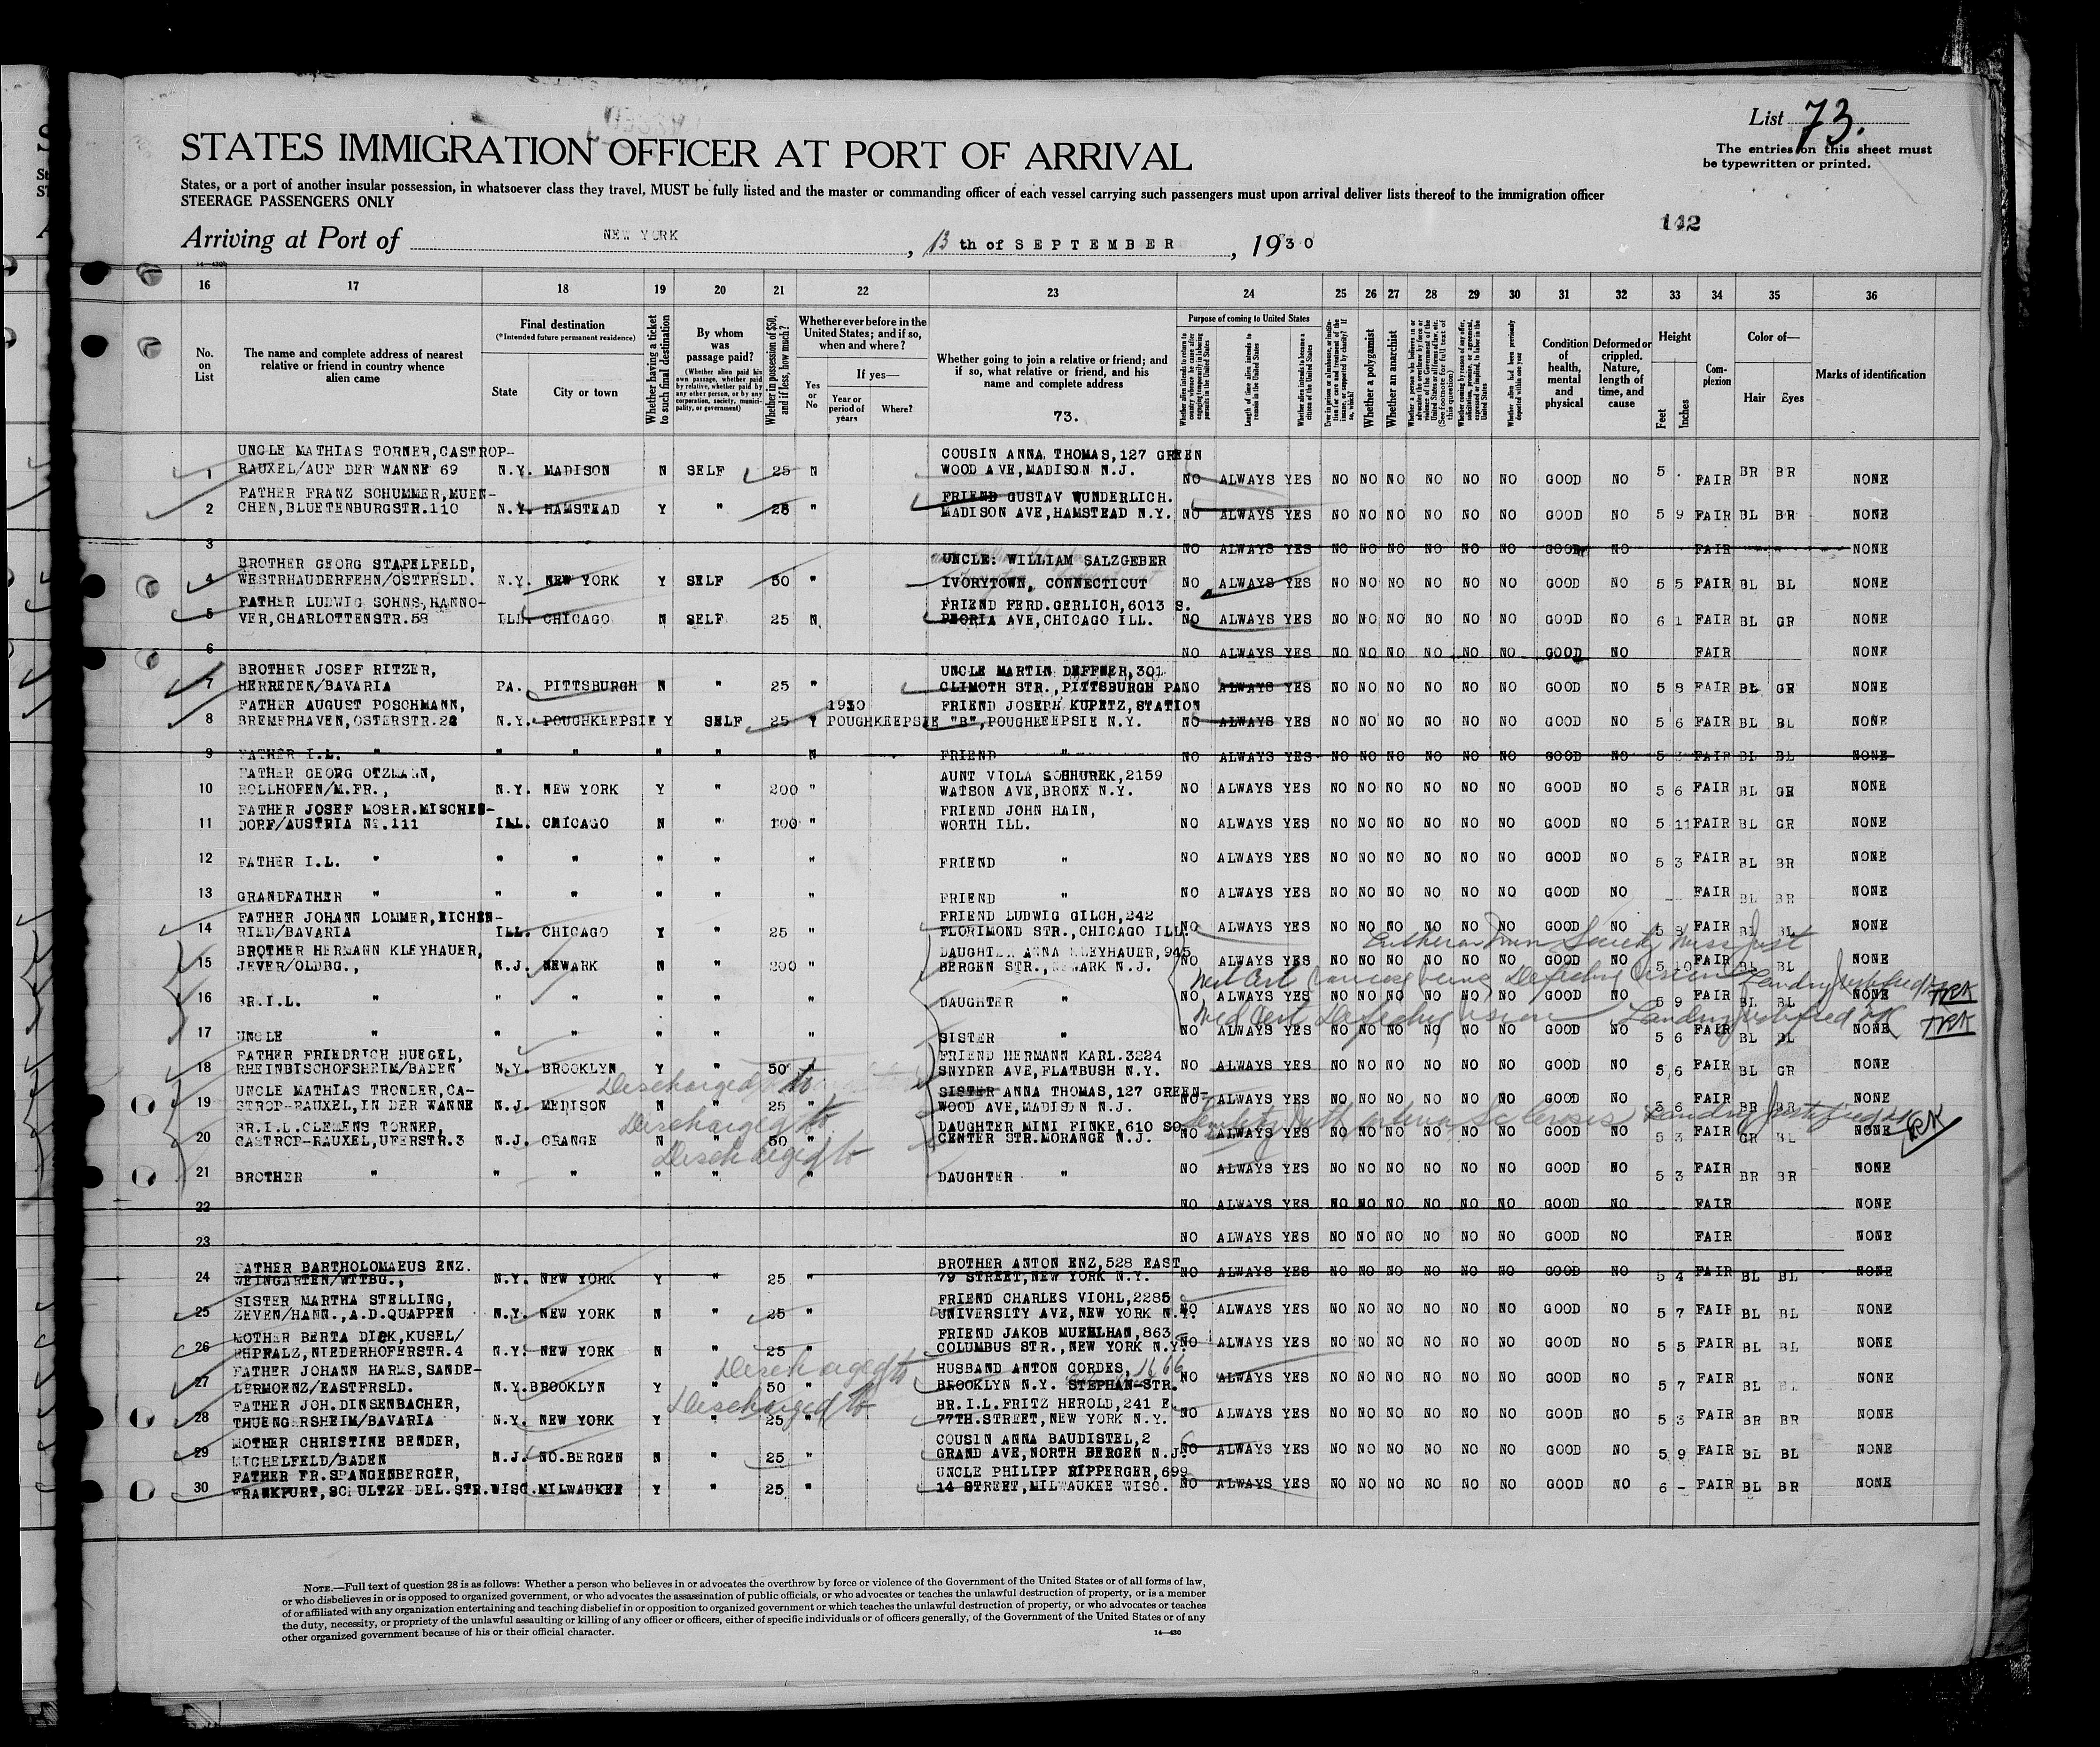 List 73.
The entries on this sheet must
be typewritten or printed.
STATES IMMIGRATION OFFICER AT PORT OF ARRIVAL
States, or a port of another insular possession, in whatsoever class they travel, MUST be fully listed and the master or commanding officer of each vessel carrying such passengers must upon arrival deliver lists thereof to the immigration officer
STEERAGE PASSENGERS ONLY
142
Arriving at Port of NEW YORK, 13 th of SEPTEMBER, 1930
16 17 18 19 20 21 22 23 24 25 26 27 28 29 30 31 32 33 34 35 36
No. on List
The name and complete address of nearest relative or friend in country whence alien came
Final destination
(*Intended future permanent residence)
State
City or town
Whether having a ticket to such final destination
By whom was passage paid?
(Whether alien paid his own passage, whether paid by relative, whether paid by any other person, or by any corporation, society, municipality, or government)
Whether in possession of $50, and if less, how much?
Whether ever before in the United States; and if so, when and where?
Yes or No
If yes—
Year or period of years
Where?
Whether going to join a relative or friend; and if so, what relative or friend, and his name and complete address
73.
Purpose of coming to United States
Whether a polygamist
Whether an anarchist
Condition of health, mental and physical
Deformed or crippled. Nature, length of time, and cause
Height
Feet
Inches
Complexion
Color of—
Hair
Eyes
Marks of identification
UNCLE MATHIAS TORNER,CASTROP- COUSIN ANNA THOMAS,127 GREEN
1 RAUXEL/AUF DER WANNE 69 N.Y. MADISON N SELF 25 N WOOD AVE,MADISON N.J. NO ALWAYS YES NO NO NO NO NO NO GOOD NO 5 . FAIR BR BR NONE
FATHER FRANZ SCHUMMER,MUEN- FRIEND GUSTAV WUNDERLICH.
2 CHEN,BLUETENBURGSTR.110 N.Y. HAMSTEAD Y " 25 " MADISON AVE,HAMSTEAD N.Y. NO ALWAYS YES NO NO NO NO NO NO GOOD NO 5 9 FAIR BL BR NONE
3 NO ALWAYS YES NO NO NO NO NO NO GOOD NO FAIR NONE
BROTHER GEORG STAPELFELD, UNCLE: WILLIAM SALZGEBER
4 WESTRHAUDERFEHN/OSTFRSLD. N.Y. NEW YORK Y SELF 50 " IVORYTOWN, CONNECTICUT NO ALWAYS YES NO NO NO NO NO NO GOOD NO 5 5 FAIR BL BL NONE
FATHER LUDWIG SOHNS,HANNO- FRIEND FERD.GERLICH,6013 S.
5 VER,CHARLOTTENSTR.58 ILL. CHICAGO N SELF 25 N PEORIA AVE,CHICAGO ILL. NO ALWAYS YES NO NO NO NO NO NO GOOD NO 6 1 FAIR BL GR NONE
6 NO ALWAYS YES NO NO NO NO NO NO GOOD NO FAIR NONE
BROTHER JOSEF RITZER, UNCLE MARTIN DEFFNER,301
7 HERREDEN/BAVARIA PA. PITTSBURGH N " 25 " CLIMOTH STR.,PITTSBURGH PA NO ALWAYS YES NO NO NO NO NO NO GOOD NO 5 8 FAIR BL GR NONE
FATHER AUGUST POSCHMANN, 1930 FRIEND JOSEPH KUPETZ,STATION
8 BREMERHAVEN,OSTERSTR.28 N.Y. POUGHKEEPSIE Y SELF 25 Y POUGHKEEPSIE "B",POUGHKEEPSIE N.Y. NO ALWAYS YES NO NO NO NO NO NO GOOD NO 5 6 FAIR BL BL NONE
9 FATHER I.L. " " " " " N FRIEND " NO ALWAYS YES NO NO NO NO NO NO GOOD NO 5 3 FAIR BL BL NONE
FATHER GEORG OTZMANN, AUNT VIOLA SCHHUREK,2159
10 ROLLHOFEN/M.FR., N.Y. NEW YORK Y " 200 " WATSON AVE,BRONX N.Y. NO ALWAYS YES NO NO NO NO NO NO GOOD NO 5 6 FAIR BL GR NONE
FATHER JOSEF MOSER.MISCHEN- FRIEND JOHN HAIN,
11 DORF/AUSTRIA NR.111 ILL. CHICAGO N " 100 " WORTH ILL. NO ALWAYS YES NO NO NO NO NO NO GOOD NO 5 11 FAIR BL GR NONE
12 FATHER I.L. " " " " " " FRIEND " NO ALWAYS YES NO NO NO NO NO NO GOOD NO 5 3 FAIR BL BR NONE
13 GRANDFATHER " " " " " " FRIEND " NO ALWAYS YES NO NO NO NO NO NO GOOD NO FAIR BL BR NONE
FATHER JOHANN LOMMER,EICHEN- FRIEND LUDWIG GILCH,242
14 RIED/BAVARIA ILL. CHICAGO Y " 25 " FLORIMOND STR.,CHICAGO ILL. NO ALWAYS YES NO NO NO NO NO NO GOOD NO 5 8 FAIR BL BL NONE
BROTHER HERMANN KLEYHAUER, DAUGHTER ANNA KLEYHAUER,945
15 JEVER/OLDBG., N.J. NEWARK N " 200 " BERGEN STR.,NEWARK N.J. NO ALWAYS YES NO NO NO NO NO NO GOOD NO 5 10 FAIR BL BL NONE
16 BR.I.L. " " " " " " DAUGHTER " NO ALWAYS YES NO NO NO NO NO NO GOOD NO 5 9 FAIR BL BL NONE
Med Cert Defective Vision
17 UNCLE " " " " " " SISTER " NO ALWAYS YES NO NO NO NO NO NO GOOD NO 5 6 FAIR BL BL NONE
FATHER FRIEDRICH HUEGEL, FRIEND HERMANN KARL.3224
18 RHEINBISCHOFSHEIM/BADEN N.Y. BROOKLYN Y " 50 " SNYDER AVE,FLATBUSH N.Y. NO ALWAYS YES NO NO NO NO NO NO GOOD NO 5 6 FAIR BL GR NONE
Discharged to
UNCLE MATHIAS TRONLER,CA- SISTER ANNA THOMAS,127 GREEN-
19 STROP-RAUXEL,IN DER WANNE N.J. MEDISON N " 25 " WOOD AVE,MADISON N.J. NO ALWAYS YES NO NO NO NO NO NO GOOD NO 5 6 FAIR BR BR NONE
Discharged to
BR.I.L.CLEMENS TORNER, DAUGHTER MINI FINKE,610 SO.
20 CASTROP-RAUXEL,UFERSTR.3 N.J. ORANGE N " 50 " CENTER STR.MORANGE N.J. NO ALWAYS YES NO NO NO NO NO NO GOOD NO 5 3 FAIR GR BL NONE
Discharged to
21 BROTHER " " " " " " DAUGHTER " NO ALWAYS YES NO NO NO NO NO NO GOOD NO 5 3 FAIR BR BR NONE
22 NO ALWAYS YES NO NO NO NO NO NO GOOD NO FAIR NONE
23 NO ALWAYS YES NO NO NO NO NO NO GOOD NO FAIR NONE
FATHER BARTHOLOMAEUS ENZ. BROTHER ANTON ENZ,528 EAST
24 WEINGARTEN/WTTBG., N.Y. NEW YORK Y " 25 " 79 STREET,NEW YORK N.Y. NO ALWAYS YES NO NO NO NO NO NO GOOD NO 5 4 FAIR BL BL NONE
SISTER MARTHA STELLING, FRIEND CHARLES VIOHL,2285
25 ZEVEN/HANN.,A.D.QUAPPEN N.Y. NEW YORK N " 25 " UNIVERSITY AVE,NEW YORK N.Y. NO ALWAYS YES NO NO NO NO NO NO GOOD NO 5 7 FAIR BL BL NONE
MOTHER BERTA DIEK,KUSEL/ FRIEND JAKOB MUEHLHAN,863
26 RHPFALZ,NIEDERHOFERSTR.4 N.Y. NEW YORK N " 25 " COLUMBUS STR.,NEW YORK N.Y. NO ALWAYS YES NO NO NO NO NO NO GOOD NO 5 5 FAIR BL BL NONE
Discharged to
FATHER JOHANN HARMS,SANDE- HUSBAND ANTON CORDES, 1666
27 LERMOENZ/EASTFRSLD. N.Y. BROOKLYN Y " 50 " BROOKLYN N.Y. STEPHAN STR. NO ALWAYS YES NO NO NO NO NO NO GOOD NO 5 7 FAIR BL BL NONE
Discharged to
FATHER JOH.DINSENBACHER, BR.I.L.FRITZ HEROLD,241 E.
28 THUENGERSHEIM/BAVARIA N.Y. NEW YORK Y " 25 " 77TH.STREET,NEW YORK N.Y. NO ALWAYS YES NO NO NO NO NO NO GOOD NO 5 3 FAIR BR BR NONE
MOTHER CHRISTINE BENDER, COUSIN ANNA BAUDISTEL,2
29 MICHELFELD/BADEN N.J. NO.BERGEN N " 25 " GRAND AVE,NORTH BERGEN N.J. NO ALWAYS YES NO NO NO NO NO NO GOOD NO 5 9 FAIR BL BL NONE
FATHER FR.SPANGENBERGER, UNCLE PHILIPP RIPPERGER,699
30 FRANKFURT,SCHULTZE DEL.STR. WISC. MILWAUKEE Y " 25 " 14 STREET,MILWAUKEE WISC. NO ALWAYS YES NO NO NO NO NO NO GOOD NO 6 - FAIR BL BR NONE
NOTE.—Full text of question 28 is as follows: Whether a person who believes in or advocates the overthrow by force or violence of the Government of the United States or of all forms of law,
or who disbelieves in or is opposed to organized government, or who advocates the assassination of public officials, or who advocates or teaches the unlawful destruction of property, or is a member
of or affiliated with any organization entertaining and teaching disbelief in or opposition to organized government or which teaches the unlawful destruction of property, or who advocates or teaches
the duty, necessity, or propriety of the unlawful assaulting or killing of any officer or officers, either of specific individuals or of officers generally, of the Government of the United States or of any
other organized government because of his or their official character.
14—430